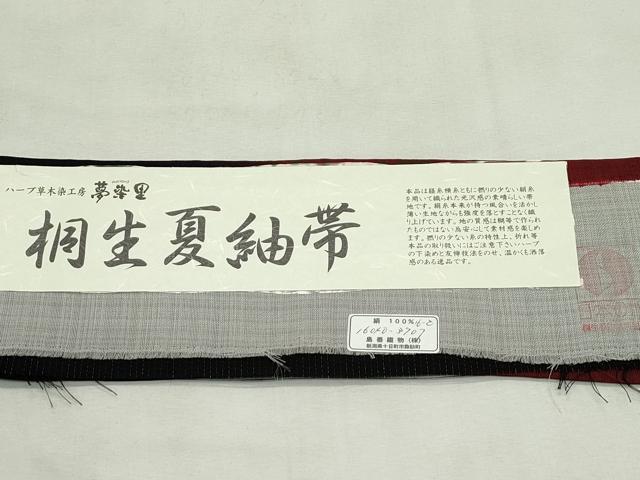 ハーブ草木染工房 夢染里
桐生夏紬帯
本品は経糸横糸ともに撚りの少ない絹糸
を用いて織られた光沢感の素晴らしい帯
地です。絹糸本来が持つ風合いを活かし
薄い生地ながらも強度を落とすことなく織
り上げています。地の質感は糊等で作られ
たものではない為安心して素材感を楽しめ
ます。撚りの少ない糸の特性上、折れ等
本品の取り扱いにはご注意下さいハーブ
の下染めと友禅技法をのせ、温かくも洒落
感のある逸品です。
絹 100%
160KD-8707
島善織物(株)
新潟県十日町市